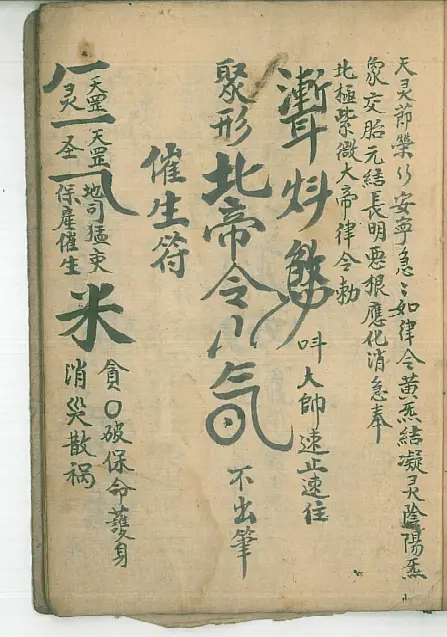 天灵節榮行安寧急〻如律令黄炁結凝灵陰陽炁
象交胎元結長明恶根應化消急奉
北極紫微大帝律令勅
叫大帥速止速住
聚形北帝令
不出筆
催生符
天罡
灵
天罡
圣
地司猛吏
保産催生
米
貪〇破保命護身
消災散祸